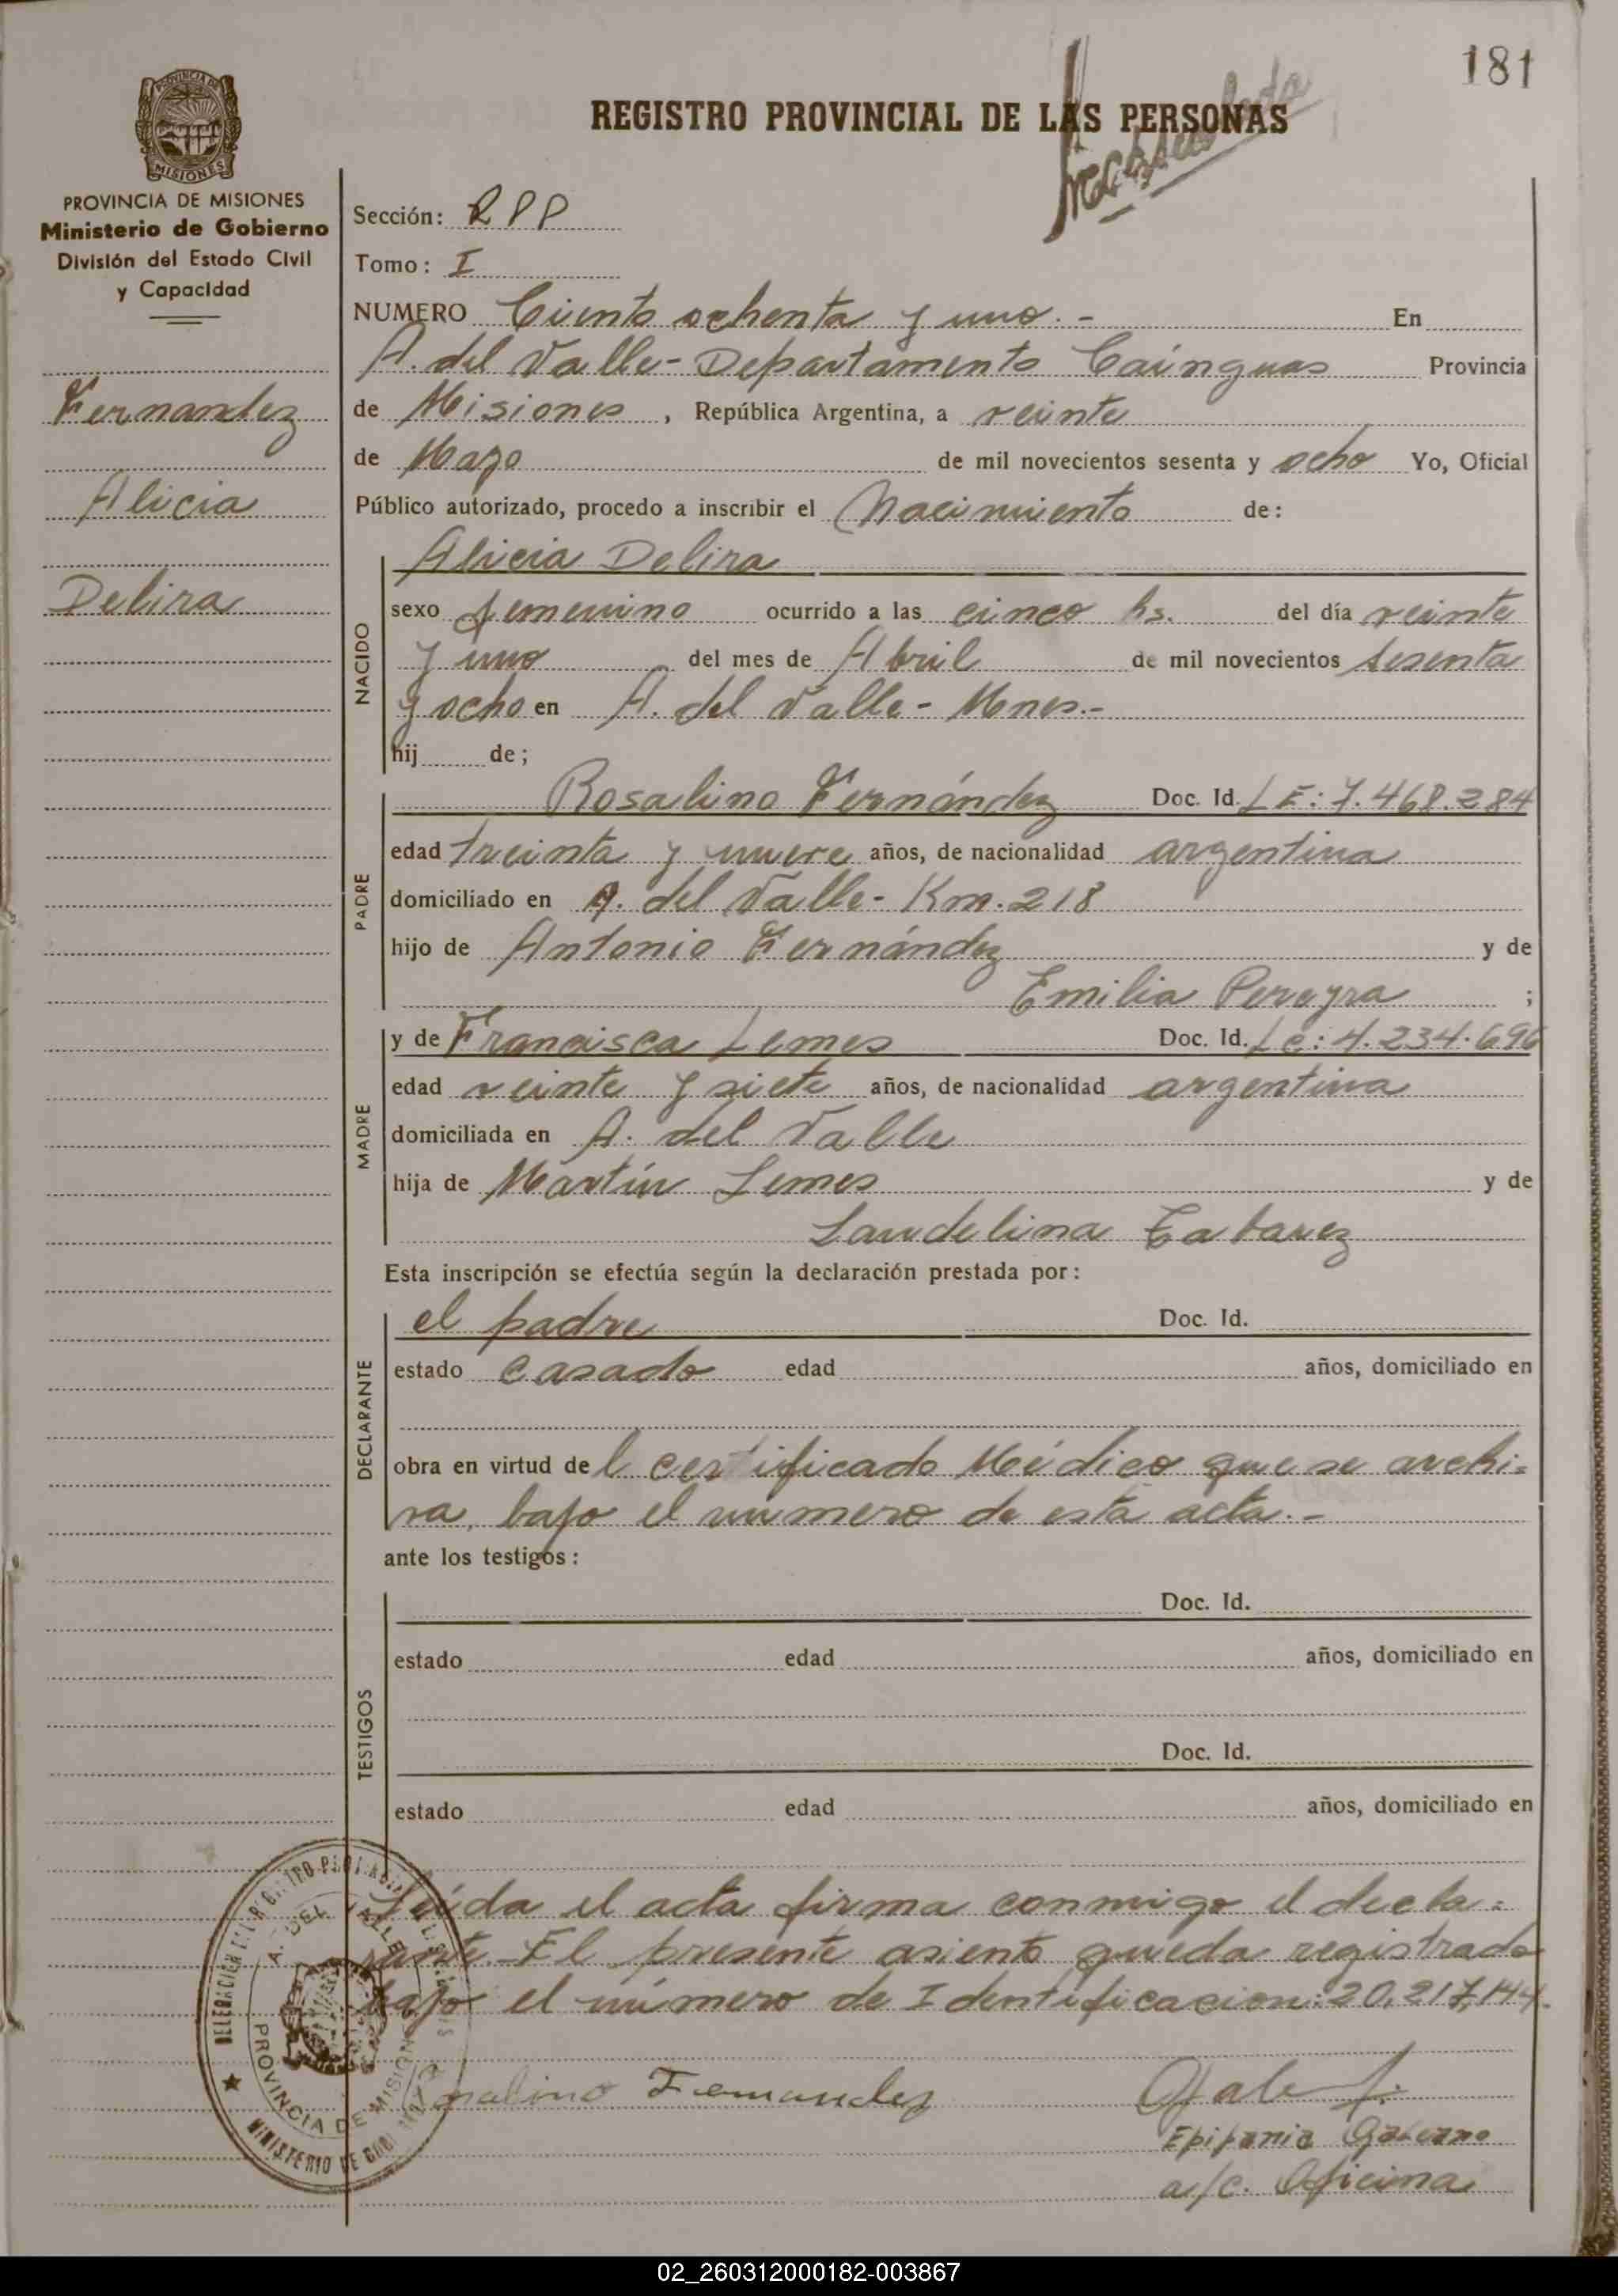 181
REGISTRO PROVINCIAL DE LAS PERSONAS
MISIONES
PROVINCIA DE MISIONES
Ministerio de Gobierno
División del Estado Civil
y Capacidad
Fernandez
Alicia
Delira
Sección: RPP
Tomo: I
NUMERO Ciento ochenta y uno.- En
A. del Valle- Departamento Cainguas Provincia
de Misiones, República Argentina, a veinte
de Mayo de mil novecientos sesenta y ocho Yo, Oficial
Público autorizado, procedo a inscribir el Nacimiento de:
NACIDO
Alicia Delira
sexo femenino ocurrido a las cinco hs. del día veinte
y uno del mes de Abril de mil novecientos sesenta
y ocho en A. del Valle- Mnes.-
hij de;
PADRE
Rosalino Fernández Doc. Id. LE: 7.468.284
edad treinta y nueve años, de nacionalidad argentina
domiciliado en A. del Valle- Km. 218
hijo de Antonio Fernández y de
Emilia Pereyra ;
MADRE
y de Francisca Lemes Doc. Id. LC: 4.234.696
edad veinte y siete años, de nacionalidad argentina
domiciliada en A. del Valle
hija de Martín Lemes y de
Laudelina Tabarez
Esta inscripción se efectúa según la declaración prestada por:
DECLARANTE
el padre Doc. Id.
estado casado edad años, domiciliado en
obra en virtud del certificado Médico que se archi=
va, bajo el número de esta acta.-
ante los testigos:
TESTIGOS
Doc. Id.
estado edad años, domiciliado en
Doc. Id.
estado edad años, domiciliado en
Leída el acta firma conmigo el decla=
rante.- El presente asiento queda registrado
bajo el número de Identificacion: 20,217,144.
A. DEL VALLE
PROVINCIA DE MISIONES
MINISTERIO DE
Rosalino Fernandez
Epifanio
a/c. Oficina
02_260312000182-003867